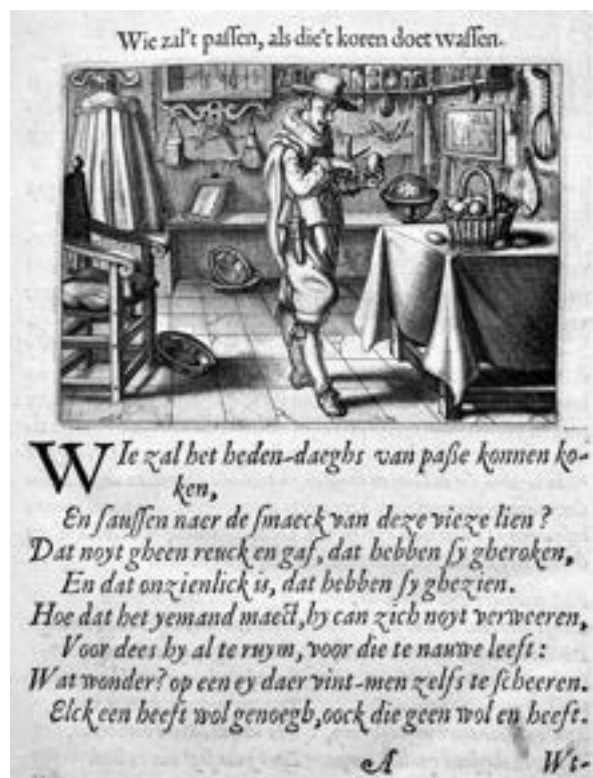 Wie zal't passen, als die't koren doet wassen.
WIe zal het heden-daeghs van paße konnen ko-
ken,
En saussen naer de smaeck van deze vieze lien?
Dat noyt gheen reuck en gaf, dat hebben sy gheroken,
En dat onzienlick is, dat hebben sy ghezien.
Hoe dat het yemand maect, hy can zich noyt verweeren,
Voor dees hy al te ruym, voor die te nauwe leeft:
Wat wonder? op een ey daer vint-men zelfs te scheeren.
Elck een heeft wol genoegh, oock die geen wol en heeft.
A Wt-